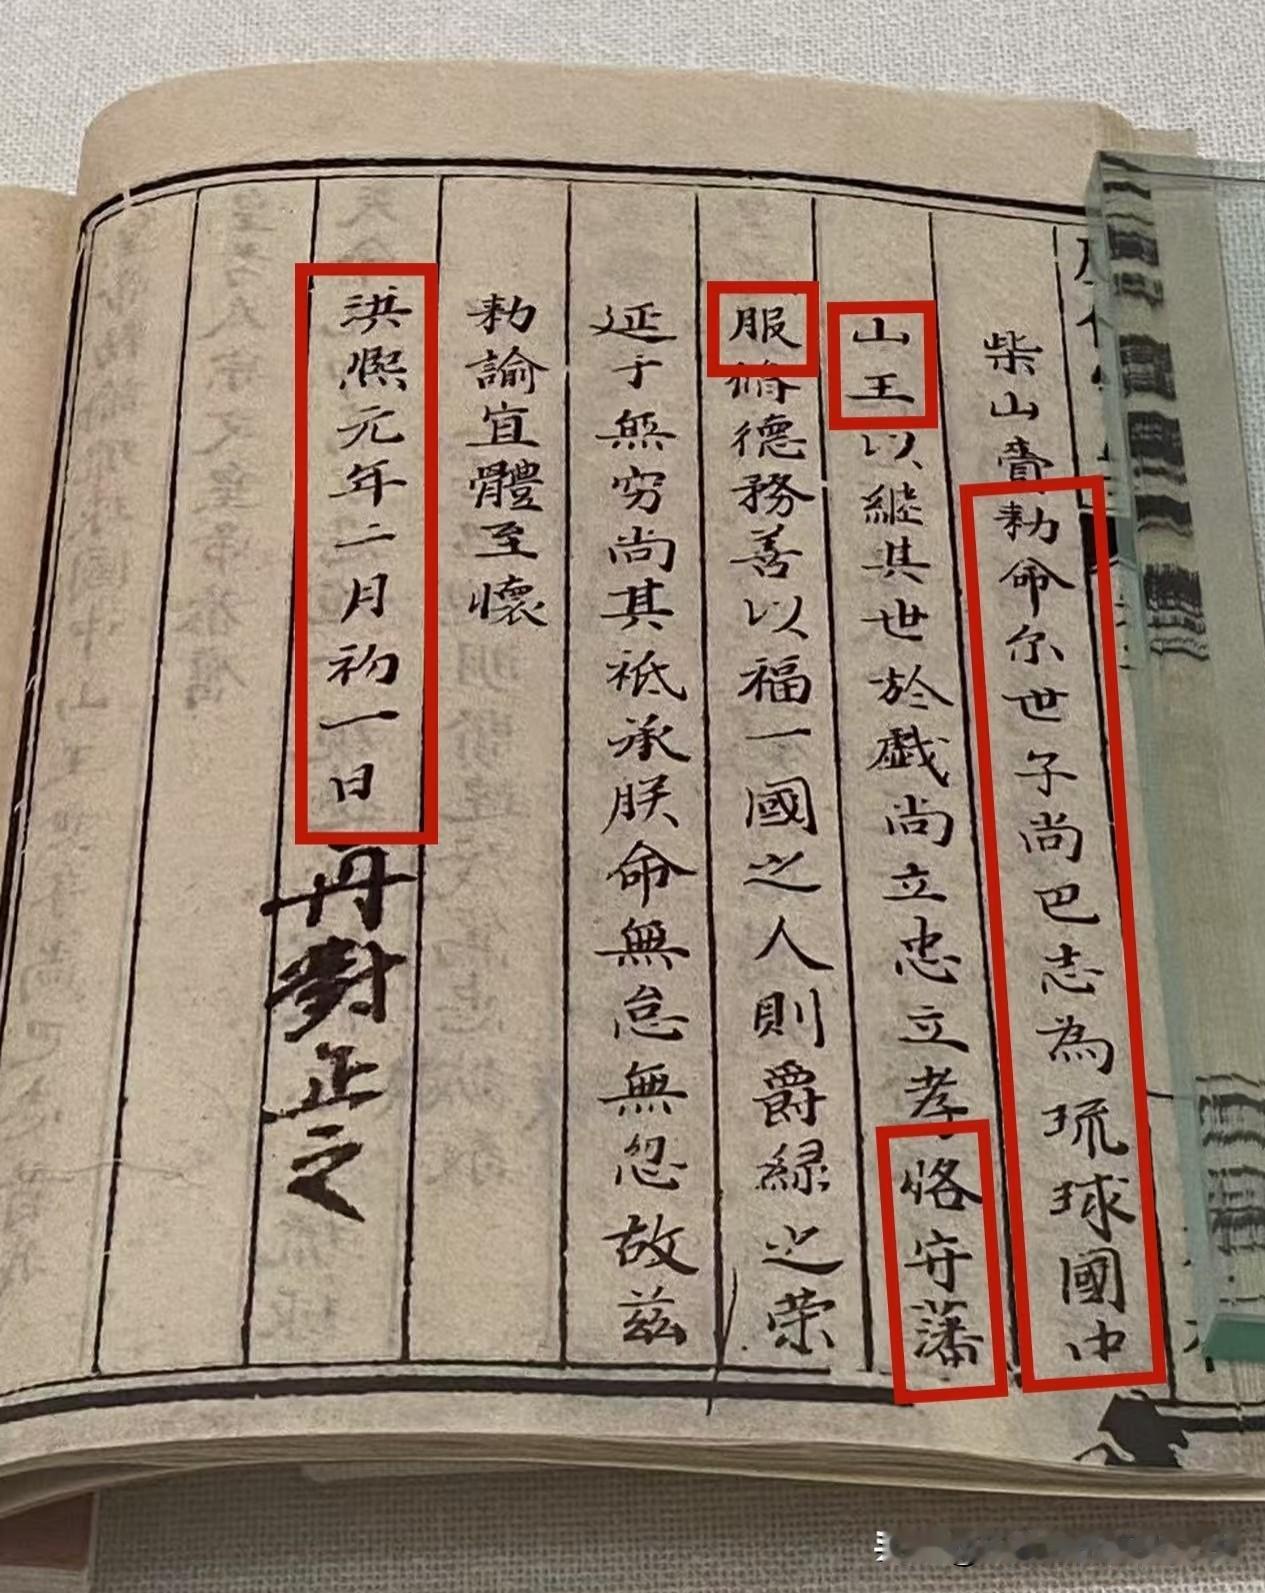 柴山賫勅命尔世子尚巴志為琉球國中
山王以継其世於戱尚立忠立孝恪守藩
服脩德務善以福一國之人則爵緑之荣
延于無穷尚其祗承朕命無怠無忽故兹
勅諭宜體至懷
洪熙元年二月初一日
丹對正之